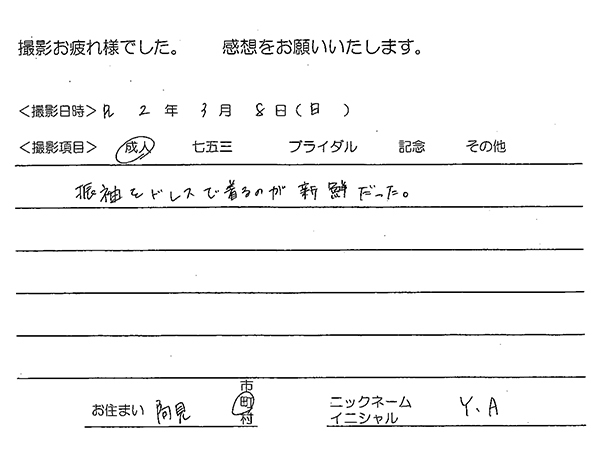 撮影お疲れ様でした。 感想をお願いいたします。
＜撮影日時＞R 2 年 3 月 8 日(日 )
＜撮影項目＞ 成人 七五三 ブライダル 記念 その他
振袖をドレスで着るのが新鮮だった。
お住まい 阿見 市 町 村 ニックネーム イニシャル Y、A